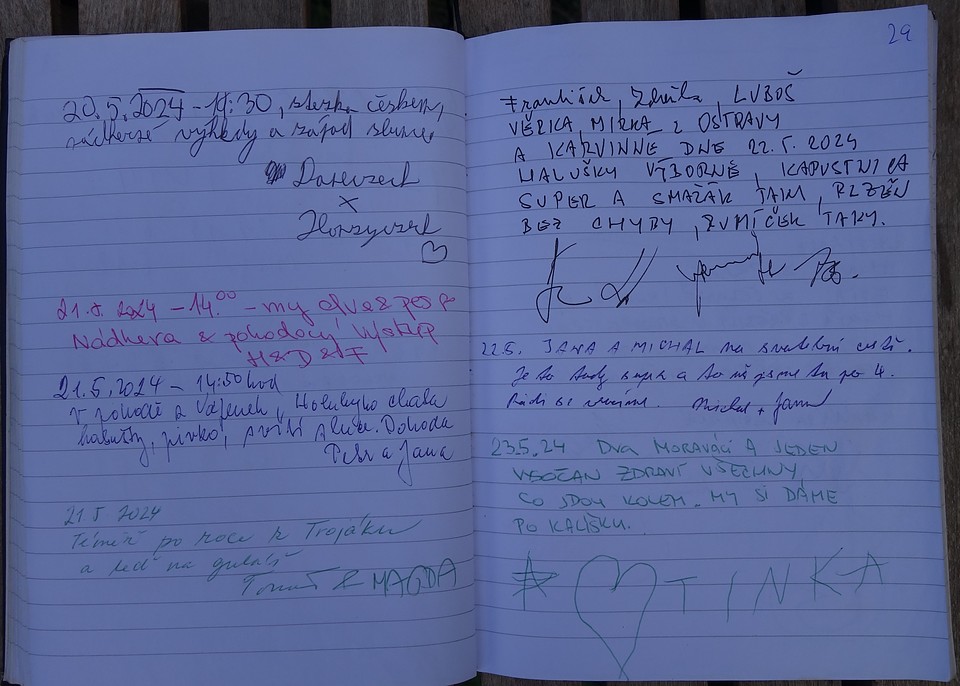 20.5.2024 - 19:30, stezk českem,
nádherné výhledy a západ slunce
Darenzech
x
Honzyczech
21.5.2024 - 14.00 - my dva & pes
Nádhera & pohodový výstup
H&D&F
21.5.2024 - 14:50 hod
v pohodě z Vápenek, Holubyho chata
halušky, pivko, svítí slunce. Pohoda
Petr a Jana
21 5 2024
Téměř po roce z Trojáku
a teď na guláš
Tomáš & MAGDA
29
František, Zdeňka, LUBOŠ
VĚRKA, MIRKA z OSTRAVY
A KARVINNÉ DNE 22.5.2024
HALUŠKY VÝBORNÉ, KAPUSTNICA
SUPER A SMAŽÁK TAKY, PLZEŇ
BEZ CHYBY, RUMÍČEK TAKY.
22.5. JANA A MICHAL na svatební cestě.
Je to tady super a to už jsme tu po 4.
Rádi se vracíme. Michal + Jana
23.5.24 DVA MORAVÁCI A JEDEN
VYSOČAN ZDRAVÍ VŠECHNY,
CO JDOU KOLEM. MY SI DÁME
PO KALÍŠKU.
TINKA